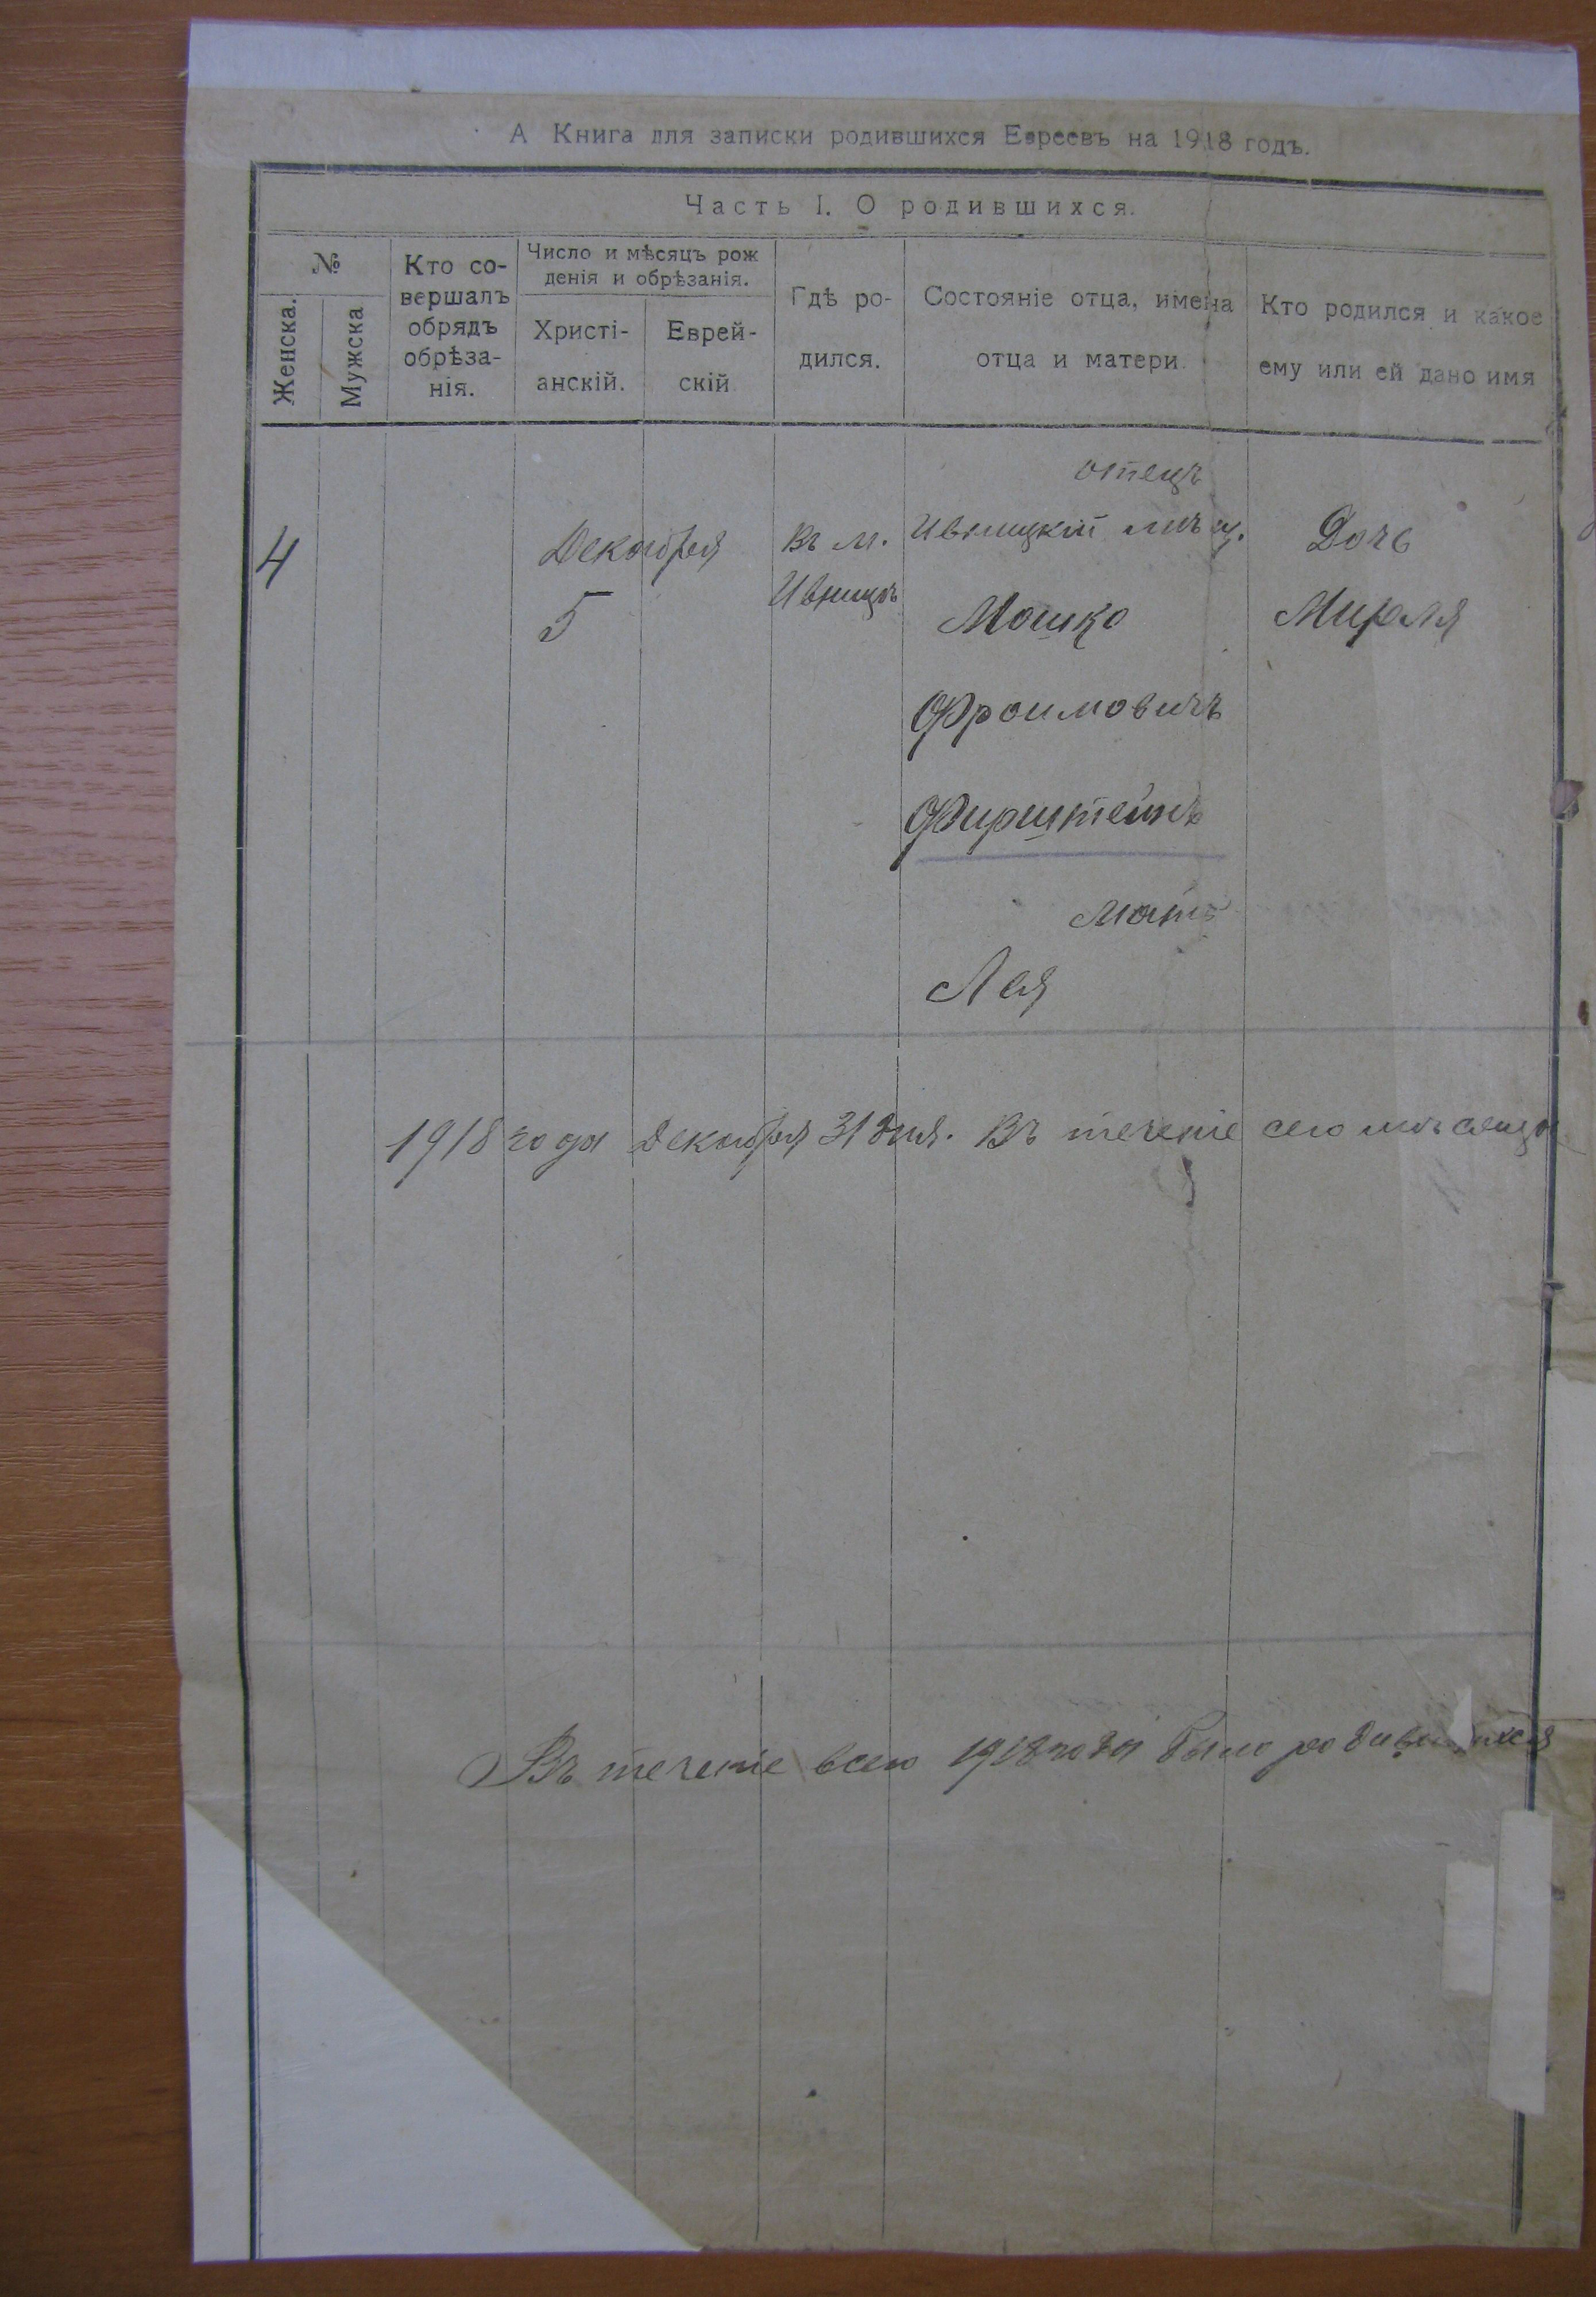 А Книга для записки родившихся Евреевъ на 1918 годъ.
Часть I. О родившихся.
№
Женска.
Мужска
Кто со-
вершалъ
обрядъ
обрѣза-
нія.
Число и мѣсяцъ рож
денія и обрѣзанія.
Христі-
анскій.
Еврей-
скій
Гдѣ ро-
дился.
Состояніе отца, имена
отца и матери
Кто родился и какое
ему или ей дано имя
4
Декабря
5
Въ м.
Ивницѣ
отецъ
Ивницкій мѣщ.
Мошко
Фроимовичъ
Фирштейнъ
мать
Лея
Дочь
Мирля
1918 года Декабря 31 дня. Въ теченіе сего мѣсяца
Въ теченіе всего 1918 года было родившихся